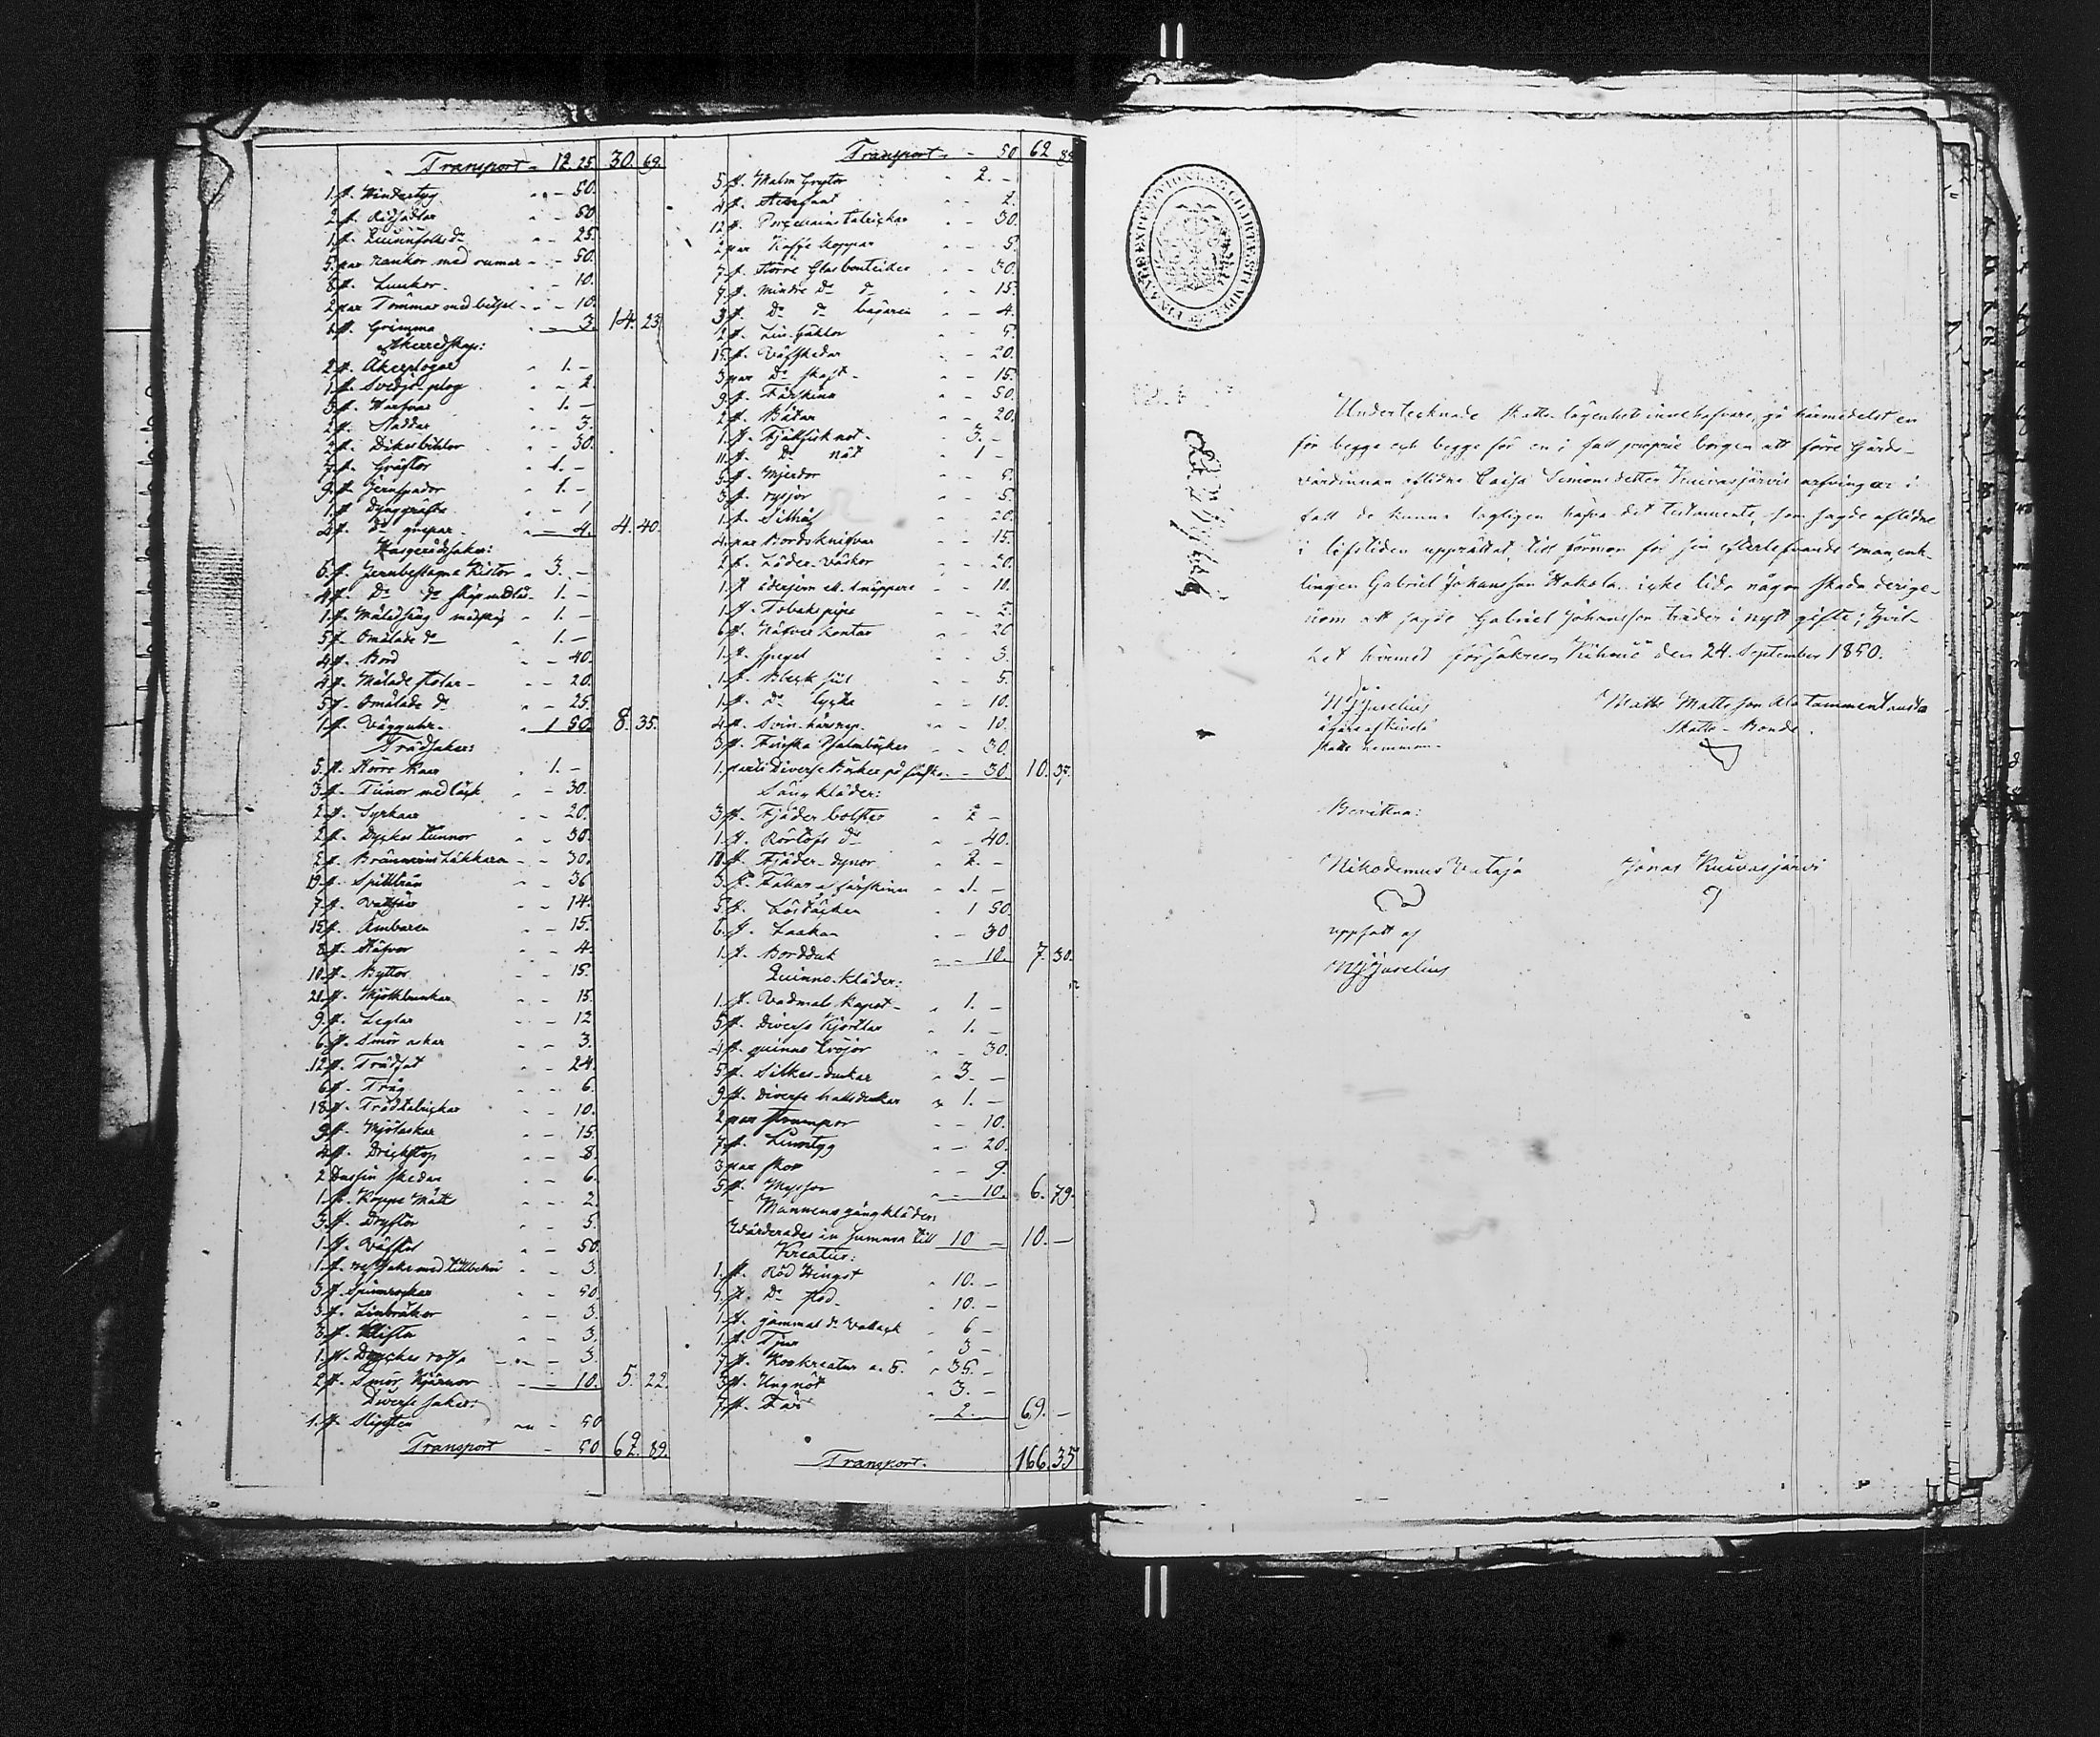 Transport - 12. 25. 30. 69.
1 st. - 50.
2 st. Ridsadlar - 50
1 st. Quinnfolks do - 25.
5 par Rankor med - 50.
8 st. Lunkor - 10.
2 par Tömmar med betsel - 10.
6 st. Grimma - 3. 14. 23.
Åkerredskap:
2 st. Åkerplogar 1. -
1 st. Svedje plog - 2.
3 st. Harfvar 1. -
2 st. Sladdar - 3.
2 st. Dikesbiklor - 30.
7 st. Gräftor 1. -
9 st. Jernspador 1. -
1 st. Dynggräfta - 1
4 st. do grepar - 4. 4. 40.
Husgerådssaker:
6 st. Jernbeslagna Kistor 3. -
4 st. do do skåp 1. -
1 st. Målad säng 1. -
5 st. Omålade do 1. -
4 st. Bord - 40.
4 st. Målade stolar - 20.
5 st. Omålade do - 25.
1 st. Vägguhr 1 50. 8. 35.
Trädsaker:
5 st. Större Kaar 1. -
3 st. Tunor med låck - 30.
2 st. Syrkaar - 20.
2 st. Dryckes tunnor - 30.
2 st. Bränvins - 30.
19 st. - 36
7 st. - 14.
15 st. Ämbaren - 15.
8 st. Stäfvor - 4.
10 st. Byttor - 15.
21 st. Mjölkbunkar - 15.
9 st. Leglar - 12
6 st. Smör askar - 3.
12 st. Trädfat - 24.
6 st. Tråg - 6.
18 st. Trädtalrickar - 10.
9 st. Mjölaskar - 15.
4 st. Drickstop - 8
2 Dussin skedar - 6.
1 st. Kappe Mått - 2.
3 st. Dryftor - 5.
1 st. Väfstol - 50.
1 st. med tillbehör - 3.
3 st. Spinnrockar - 50.
3 st. Linbråkor - 3.
3 st. - 3.
1 st. Dryckes - 3.
2 st. Smör Kjärnor - 10. 5. 22.
Diverse saker:
1 st. Slipsten - 50
Transport - 50 62. 89.
Transport - 50 62 89
5 st. Malm Grytor 2. -
2.
12 st. Porcelains talrickar - 30.
2 par Kaffe koppar - 5.
7 st. större Glas bouteiller - 30.
7 st. mindre do do - 15.
3 st. do do bägaren - 4.
2 st. Lin häklor - 5.
15 st. Väfskedar - 20.
3 par do skaft - 15.
9 st. Fårskinn - 50.
2 st. Båtar - 20.
1 st. not 3. -
11 st. do nät 1 -
5 st. Mjerdor - 5.
3 st. ryssjor - 5.
1 st. - 20.
4 par Bordsknifvar - 15.
2 st. Läder väskor - 20.
1 st. åderjern ell. knäppare - 10.
1 st. Tobakspipa - 2.
6 st. Näfver kontar - 20
1 st. spegel - 3.
1 st. Bleck - 5.
1 st. do lyckta - 10.
4 st. Svin - 10.
3 st. Finska Psalmböcker - 30.
1 parti diverse Böcker på finska - 30. 10. 37.
Sängkläder:
3 st. Fjäder bolster 2 -
1 st. Rörtofs do - 40.
18 st. Fjäder-dynor 2. -
3 st. Fällar af fårskinn 1. -
5 st. Löstäcken 1 50.
6 st. Lakan - 30
1 st. Bordduk - 10. 7. 30.
Quinno-kläder:
1 st. Vadmals kapot - 1. -
5 st. Diverse Kjortlar 1. -
4 st. quinno tröjor - 30.
5 st. Silkes-dukar 3. -
9 st. diverse halsdukar 1. -
2 par strumpor - 10.
7 st. Linntyg - 20.
3 par skor - 9.
5 st. Mössor - 10. 6. 79.
Mannens gångkläder:
Wärderades in summa till 10 - 10. -
Kreatur:
1 st. Röd Hingst 10. -
1 st. do stod 10. -
1 st. gammal do Vallack 6 -
1 st. Tjur 3 -
7 st. Kokreatur a. 5. 35. -
3 st. Ungnöt 3. -
7 st. Får 2. 69. -
Transport. 166. 35
FINANCE EXPEDITIONENS CHARTÆ
Undertecknade skatte lägenhets innehafvare, gå härmedelst en
för begge och begge för en i full proprie borgen att förre Gårds-
värdinnan aflidne Caisa Simonsdotter Kuivasjärvis arfvingar i
fall de kunna lagligen häfva det testamente, som sagde aflidne
i lifstiden upprättat till förmon för sin efterlefvande man, enk-
lingen Gabriel Johansson Hakola, icke lida någon skada derige-
nom att sagde Gabriel Johansson träder i nytt gifte; Hvil-
ket hvarmed försäkras. Kihniö den 24. September 1850.
Matts Mattsson Ala tammentausta
Skatte-Bonde.
skatte hemman.
Bevittna:
Nikodemus Vataja Jonas Kuivasjärvi
uppsatt af